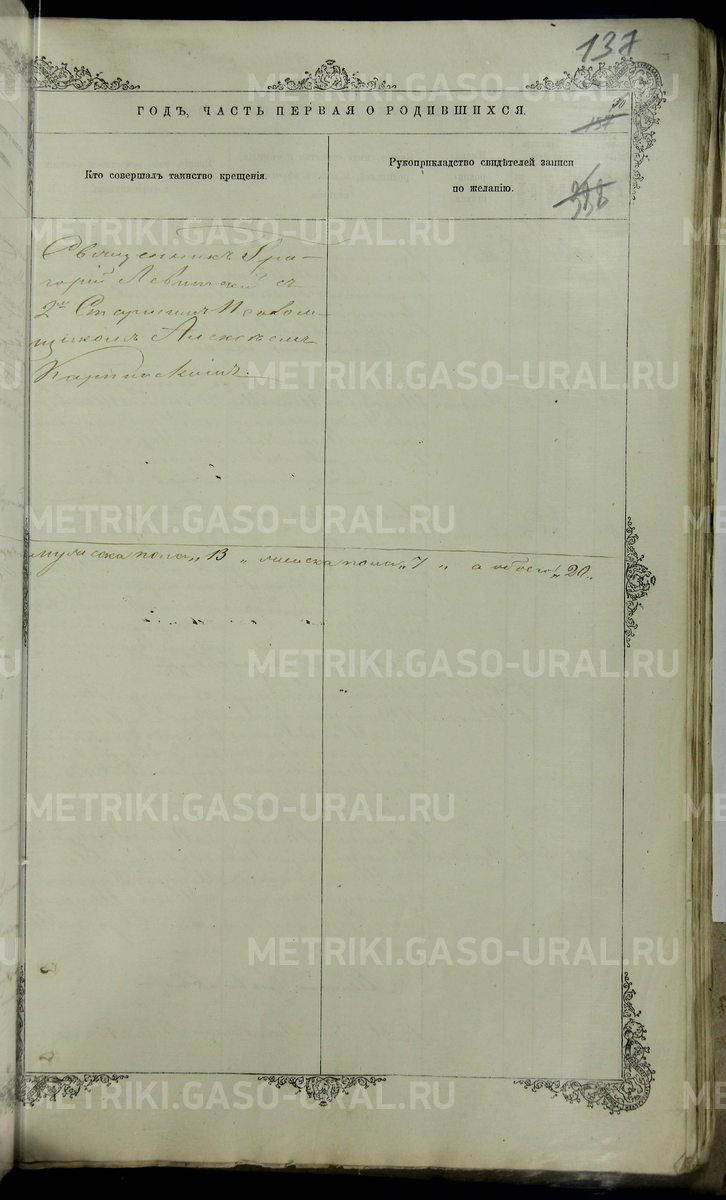 137
ГОДЪ, ЧАСТЬ ПЕРВАЯ О РОДИВШИХСЯ.
Кто совершалъ таинство крещенія.
Рукоприкладство свидѣтелей записи
по желанію.
Священникъ Гри-
горій Левитскій съ
2мъ Старшимъ Псалом-
щикомъ Алексѣемъ
Карпинскимъ.
мужеска пола „ 13 „ женска пола „ 7 „ а обоего „ 20 „
METRIKI.GASO-URAL.RU